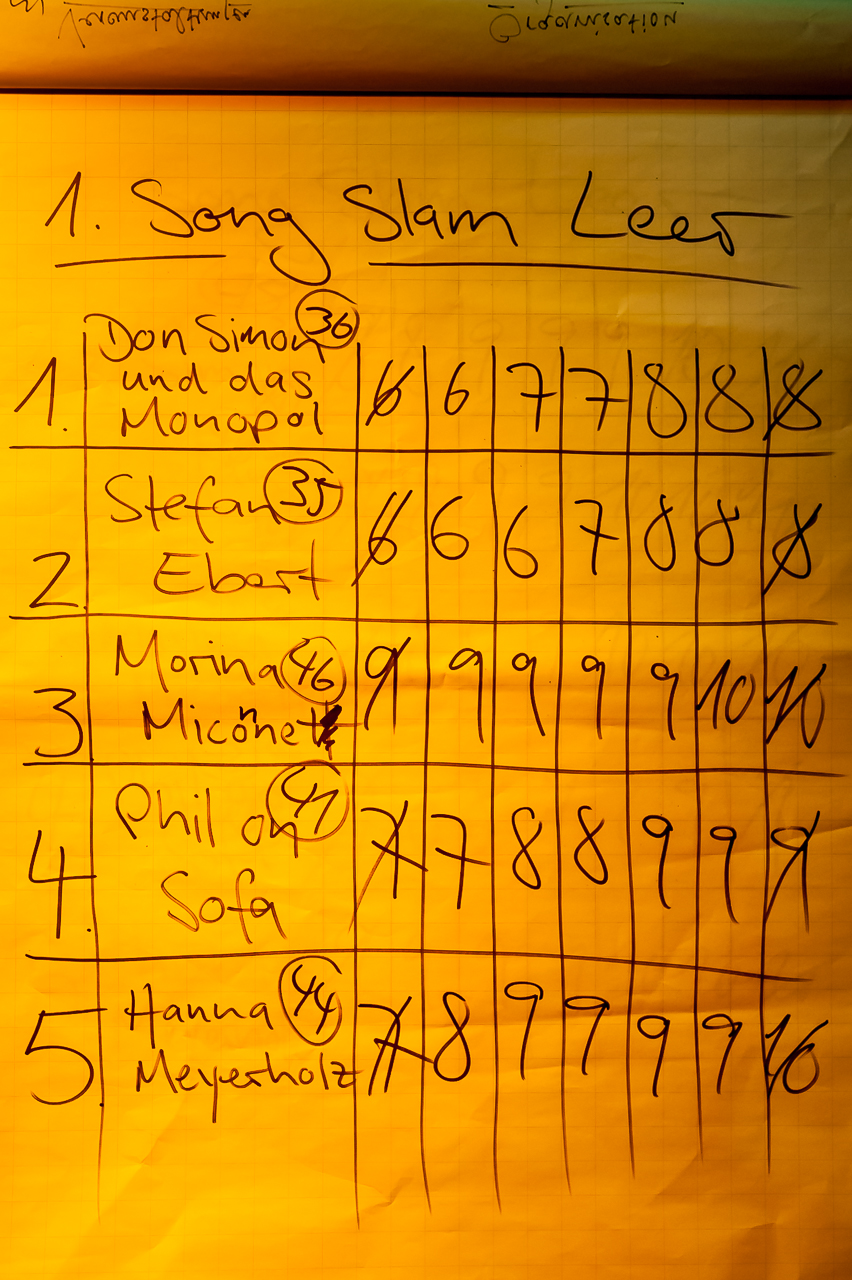 Organisation
1. Song Slam Leer
1. Don Simon und das Monopol 36 6 6 7 7 8 8 8
2. Stefan Ebert 35 6 6 6 7 8 8 8
3 Morina Miconnet 46 9 9 9 9 9 10 10
4. Phil on Sofa 41 7 7 8 8 9 9 9
5. Hanna Meyerholz 44 7 8 9 9 9 9 10